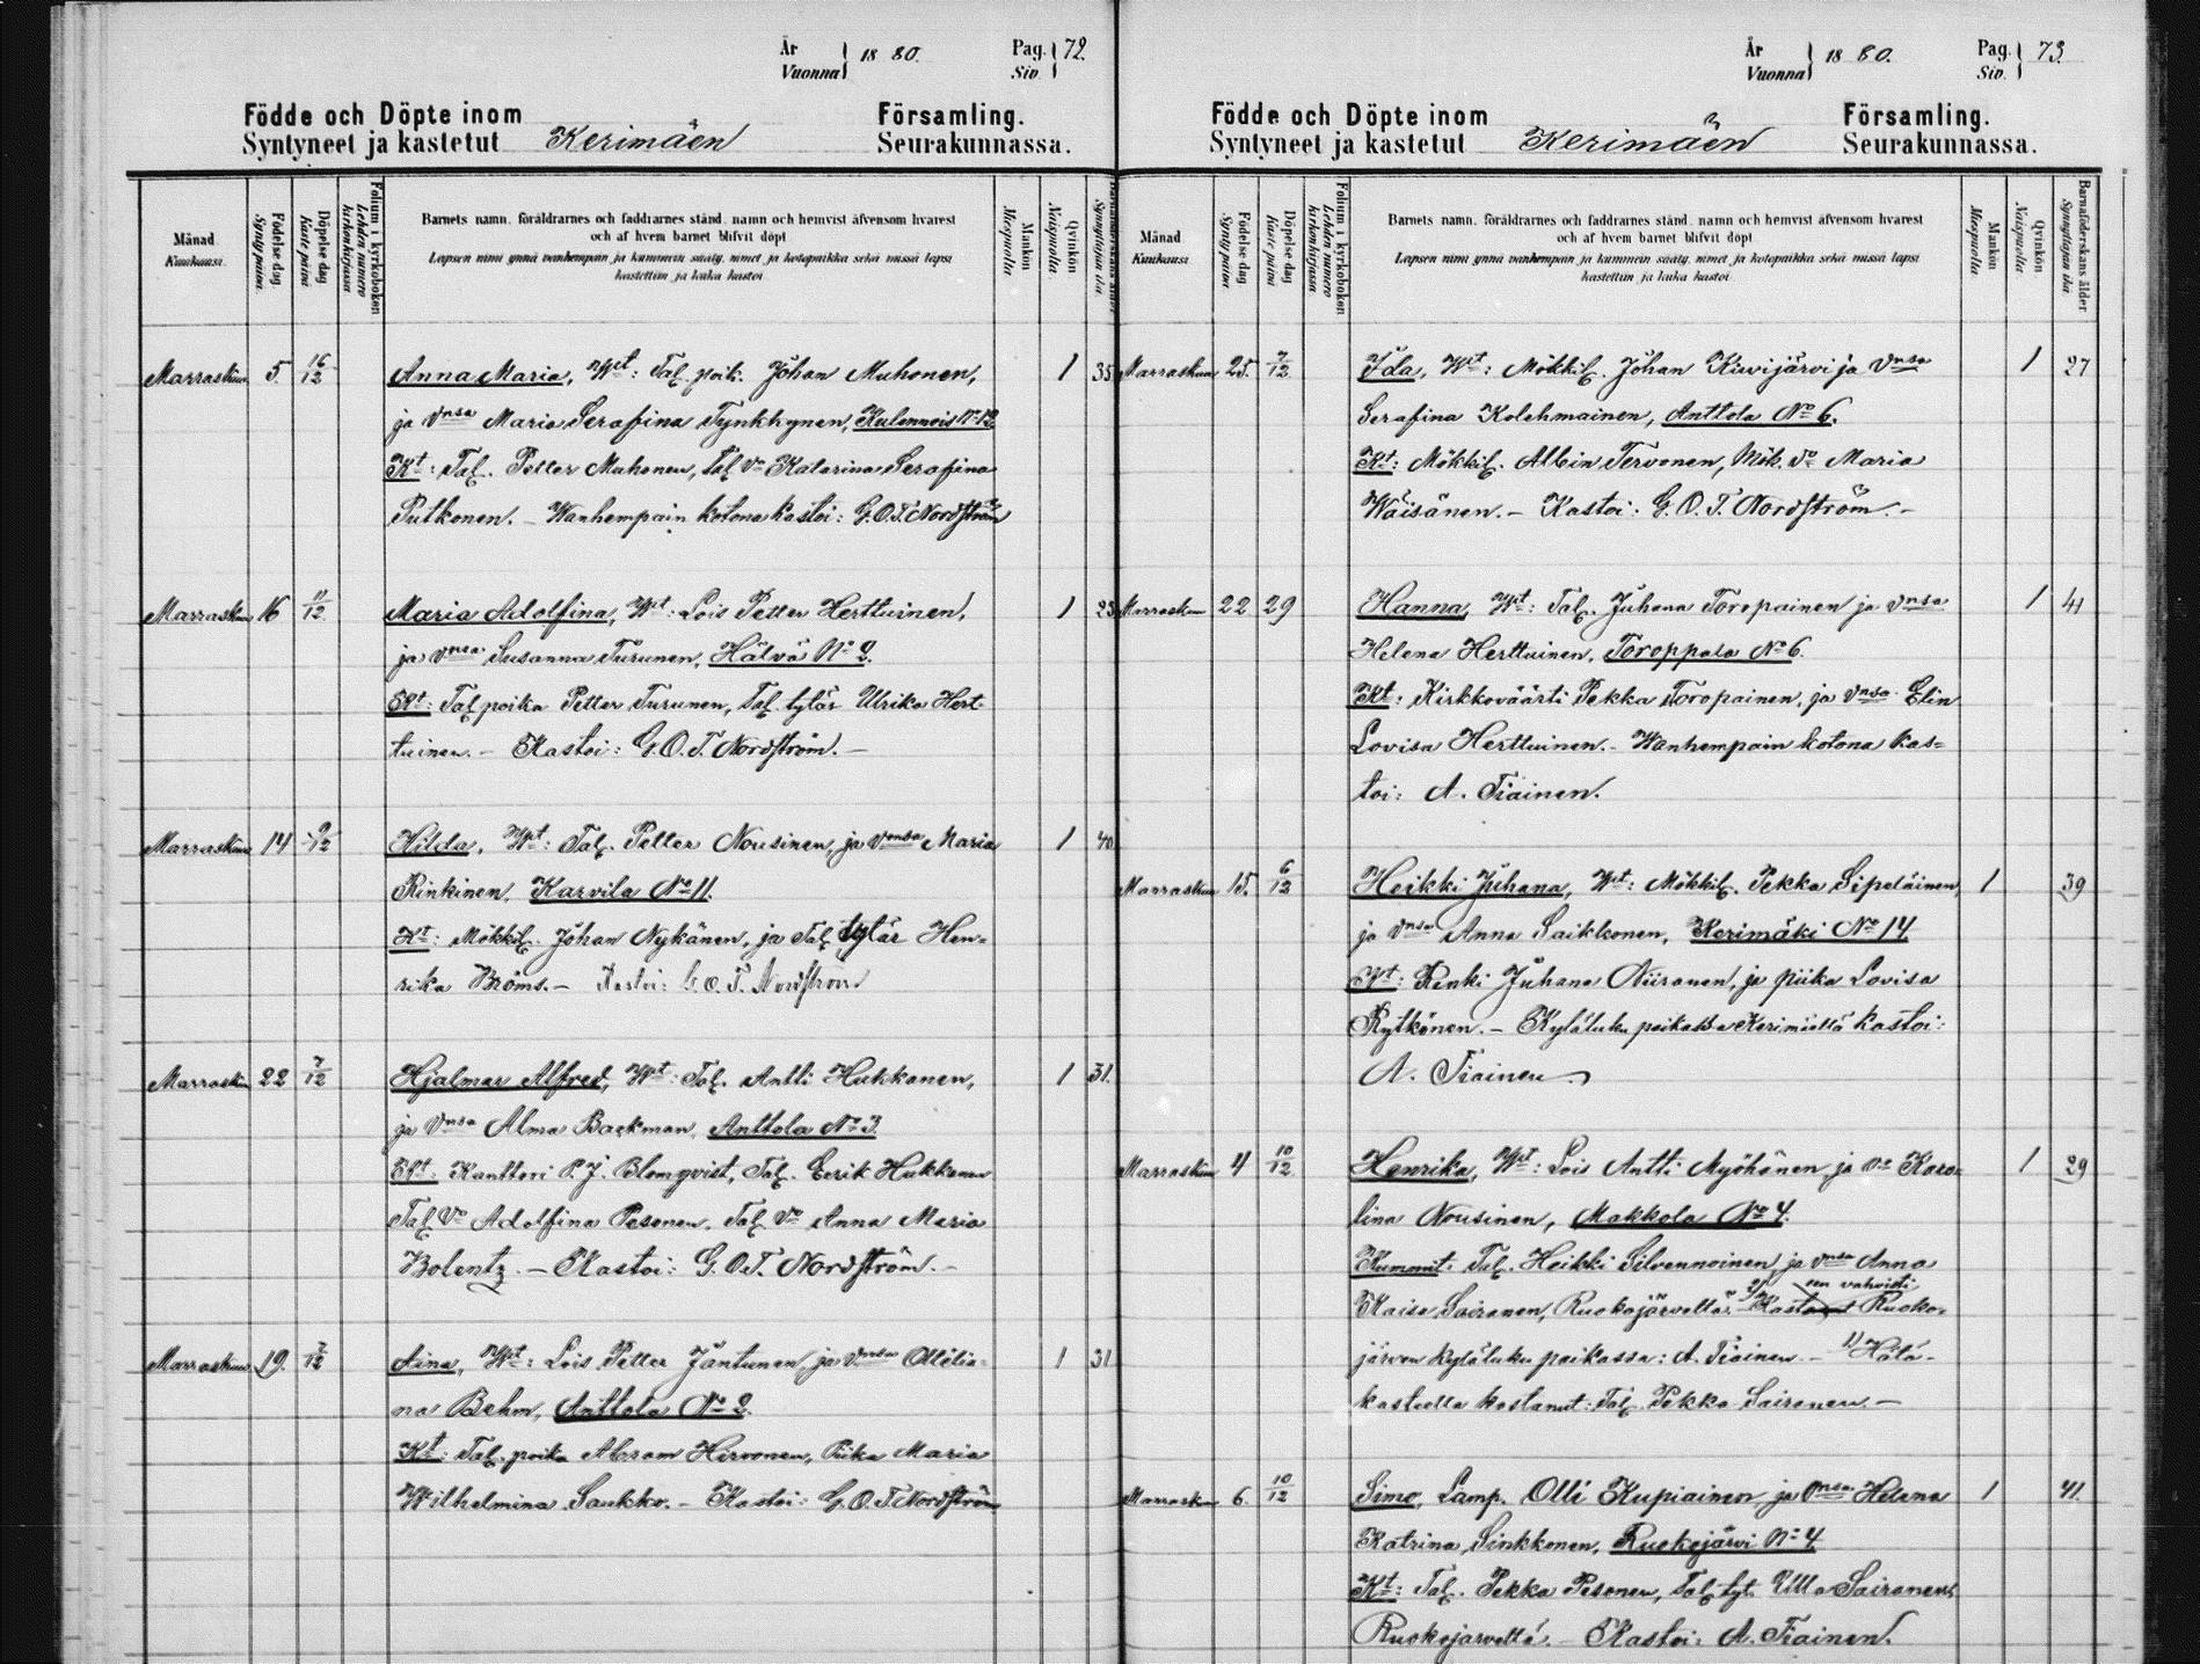 År Vuonna 1880. Pag. Siv. 72.
Födde och Döpte inom Församling.
Syntyneet ja kastetut Kerimäen Seurakunnassa.
Månad Kuukausi
Födelse dag Synty päivä
Döpelse dag Kaste päivä
Folium i kyrkoboken Lehden numero kirkonkirjassa
Barnets namn, föräldrarnes och faddrarnes stånd, namn och hemvist äfvensom hvarest
och af hvem barnet blifvit döpt
Lapsen nimi ynnä vanhempain ja kummein sääty, nimet ja kotopaikka sekä missä lapsi
kastettiin ja kuka kastoi
Mankön Miespuolia
Qvinkön Naispuolia
Marrask. 5. 16/12 Anna Maria, Wt: Tal. poik. Johan Muhonen, 1 35
ja Vnsa Maria Serafina Tynkkynen, Kulennois Nº 12
Kt: Tal. Petter Muhonen, Tal Vo Katarina Serafina
Putkonen. - Wanhempain kotona kastoi: G.O.T. Nordström
Marrask. 16 11/12 Maria Adolfina, Wt: Lois Petter Herttuinen, 1 23
ja Vnsa Susanna Turunen, Hälvä Nº 2.
Kt: Tal poika Petter Turunen, Tal. tytär Ulrika Hert-
tuinen. - Kastoi: G.O.T. Nordström. -
Marrask. 14 9/12 Hilda, Wt: Tal. Petter Nousinen, ja Vnsa Maria 1 40
Rinkinen, Karvila Nº 11.
Kt: Mökkil. Johan Nykänen, ja Tal tytär Hen-
rika Broms. - Kastoi: G.O.T. Nordström
Marrask. 22 7/12 Hjalmar Alfred, Wt: Tal. Antti Hukkanen, 1 31.
ja Vnsa Alma Backman, Anttola Nº 3
Kt: Kanttori P.J. Blomqvist, Tal. Eerik Hukkanen
Tal Vo Adolfina Pesonen, Tal Vo Anna Maria
Bolentz. - Kastoi: G.O.T. Nordström. -
Marraskuu 19. 7/12 Aina, Wt: Lois Petter Jantunen, ja Vnsa Ottilia-
na Behm, Anttola Nº 2. 1 31
Kt: Tal. poika Abram Hirvonen, Piika Maria
Wilhelmina Saukko. - Kastoi: G.O.T. Nordström
År Vuonna 1880. Pag. Siv. 73
Födde och Döpte inom Församling.
Syntyneet ja kastetut Kerimäen Seurakunnassa.
Månad Kuukausi
Födelse dag Synty päivä
Döpelse dag Kaste päivä
Folium i kyrkoboken Lehden numero kirkonkirjassa
Barnets namn, föräldrarnes och faddrarnes stånd, namn och hemvist äfvensom hvarest
och af hvem barnet blifvit döpt
Lapsen nimi ynnä vanhempain ja kummein sääty, nimet ja kotopaikka sekä missä lapsi
kastettiin ja kuka kastoi
Mankön Miespuolia
Qvinkön Naispuolia
Barnaföderskans ålder Synnyttäjän ikä
Marraskuu 25. 7/12 Ida, Wt: Mökkil. Johan Kiwijärvi ja Vnsa 1 27
Serafina Kolehmainen, Anttola Nº 6.
Kt: Mökkil. Albin Tervonen, Mök. Vo Maria
Wäisänen. - Kastoi: G.O.T. Nordström. -
Marraskuu 22 29 Hanna, Wt: Tal. Juhana Toropainen ja Vnsa 1 41
Helena Herttuinen, Toroppala Nº 6.
Kt: Kirkkoväärti Pekka Toropainen, ja Vnsa Elin
Lovisa Herttuinen. - Wanhempain kotona kas=
toi: A. Tiainen.
Marraskuu 15. 6/12 Heikki Juhana, Wt: Mökkil. Pekka Sipeläinen, 1 39
ja Vnsa Anna Saikkonen, Kerimäki Nº 14
Kt: Renki Juhana Niiranen, ja piika Lovisa
Rytkönen. - Kyläluku paikassa Kerimäellä kastoi:
A. Tiainen
Marraskuu 4 10/12 Henrika, Wt: Lois Antti Myöhänen, ja Vo Karo= 1 29
lina Nousinen, Makkola Nº 4.
Kummit: Tal. Heikki Silvennoinen, ja Vnsa Anna
sen vahvisti
Kaisa Sairanen, Ruokojärveltä. 2) Kastanut Ruoko=
järven kyläluku paikassa: A. Tiainen. - 1) Hätä-
kasteella kastanut: Tal. Pekka Sairanen. -
Marrask. 6. 10/12 Simo, Lamp. Olli Kupiainen, ja Vnsa Helena 1 41.
Katrina Sinkkonen, Ruokojärvi Nº 4
Kt: Tal. Pekka Pesonen, Tal. tyt. Ulla Sairanen,
Ruokojärveltä. - Kastoi: A. Tiainen.